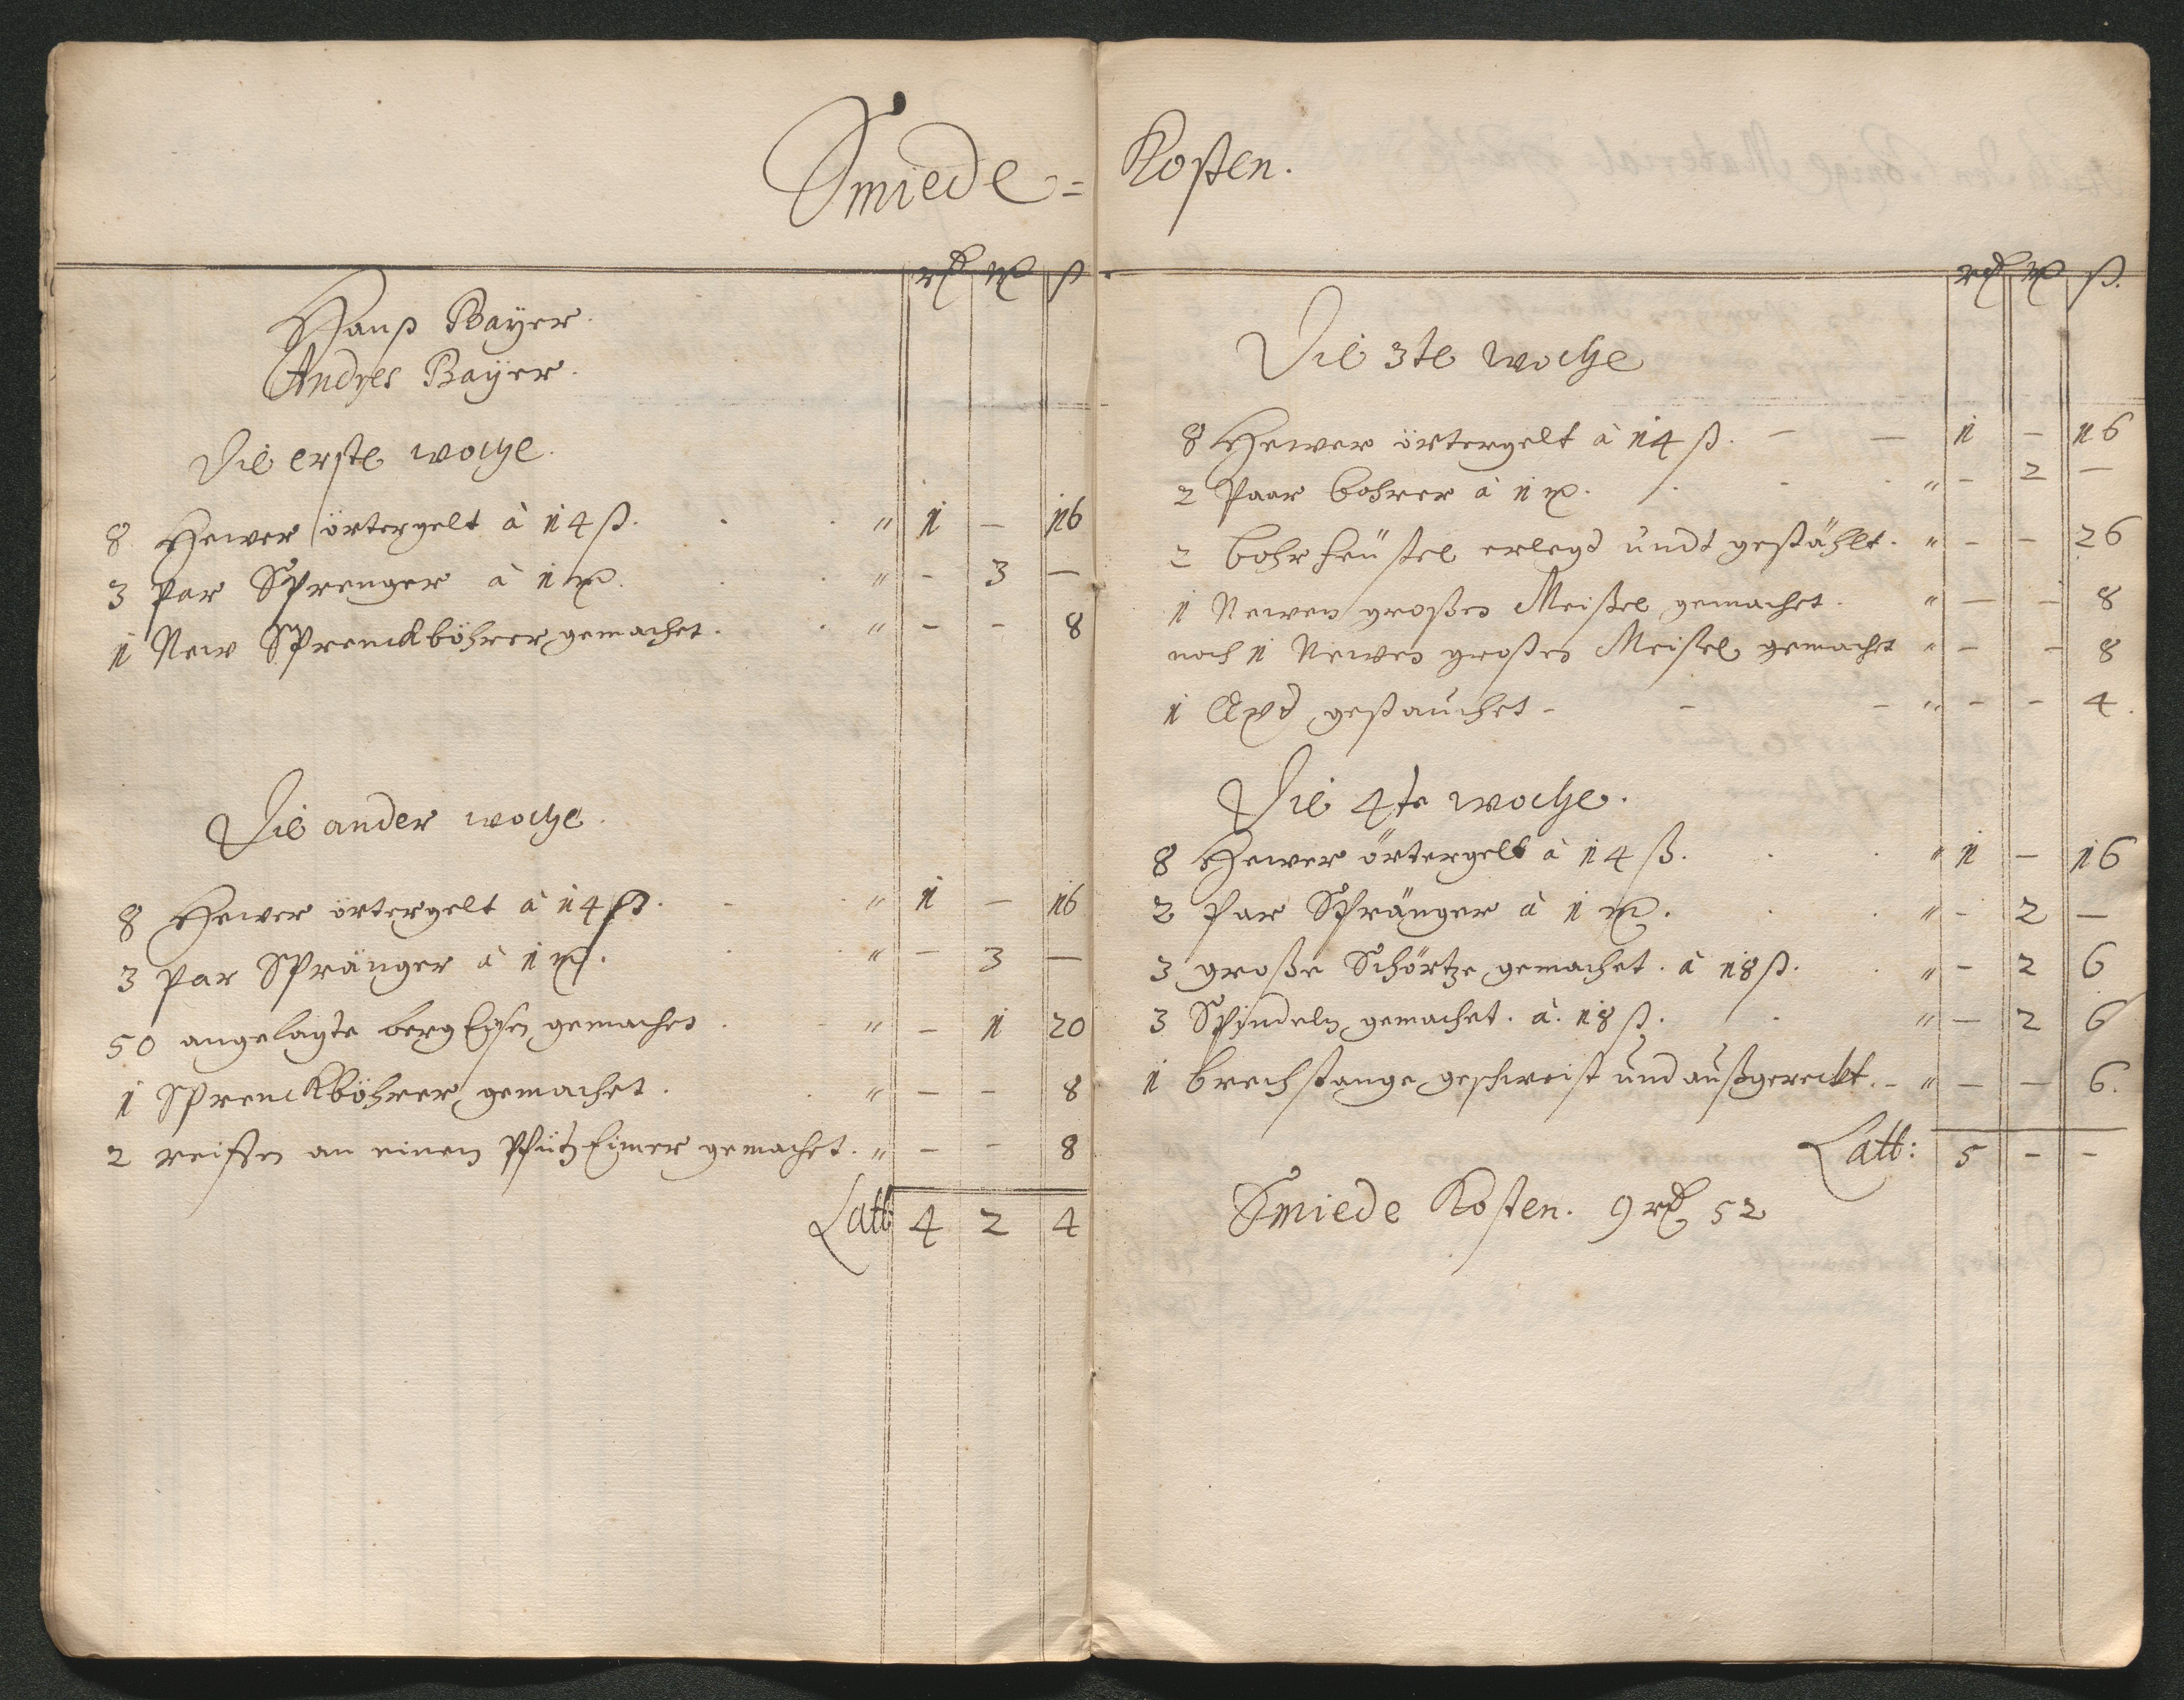 Smiede=Kosten.
rd m ß
Hanß Bayer.
Andres Bayer.
Die erste woche.
8 Hewer örtergelt à 14 ß. " 1 – 16
3 Par Sprenger à 1 m. " – 3 –
1 New Sprenckböhrer gemachet. " – – 8
Die ander woche.
8 Hewer örtergelt à 14 ß. " 1 – 16
3 Par Spränger à 1 m. " – 3 –
50 angelagte berg Eysen gemachet " – 1 20
1 Sprenckböhrer gemachet. " – – 8
2 reiffen an einen Pfütz Eimer gemachet. " – – 8
Latt: 4 2 4
rd m ß.
Die 3te woche
8 Hewer örtergelt à 14 ß. – – 1 – 16
2 Paar bohrer à 1 m. " – 2 –
2 bohr feustel erlegd undt gestählt. " – – 26
1 Newen großes Meißel gemachet. " – – 8
noch 1 Newes großes Meißel gemacht " – – 8
1 gestauchet – – – " – – 4.
Die 4te woche.
8 Hewer örtergelt à 14 ß. " 1 – 16
2 Par Spränger à 1 m. " – 2 –
3 große Schörtze gemachet. à 18 ß. " – 2 6
3 Spindeln gemachet. à. 18 ß. " – 2 6
1 brechstange geschweist und außgereckt. – " – – 6.
Latt: 5 – –
Smiede Kosten. 9 rd 52